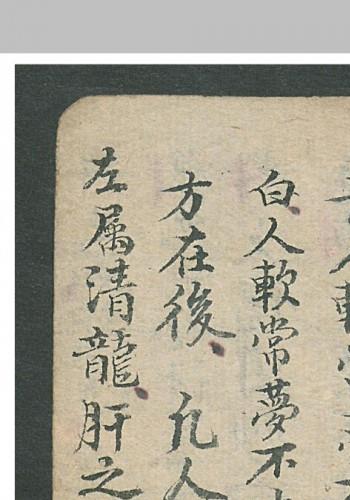 白人軟常夢不
方在後凡人
左属清龍肝之